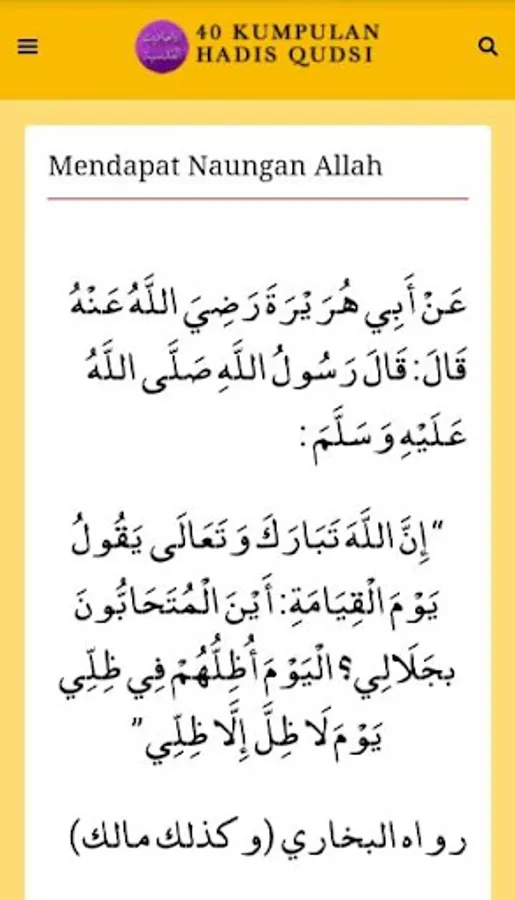 الأحاديث
القدسية
40 KUMPULAN
HADIS QUDSI
Mendapat Naungan Allah
عَنْ أَبِي هُرَيْرَةَ رَضِيَ اللَّهُ عَنْهُ
قَالَ: قَالَ رَسُولُ اللَّهِ صَلَّى اللَّهُ
عَلَيْهِ وَسَلَّمَ:
“إِنَّ اللَّهَ تَبَارَكَ وَتَعَالَى يَقُولُ
يَوْمَ الْقِيَامَةِ: أَيْنَ الْمُتَحَابُّونَ
بِجَلَالِي؟ الْيَوْمَ أُظِلُّهُمْ فِي ظِلِّي
يَوْمَ لَا ظِلَّ إِلَّا ظِلِّي”
رواه البخاري (و كذلك مالك)